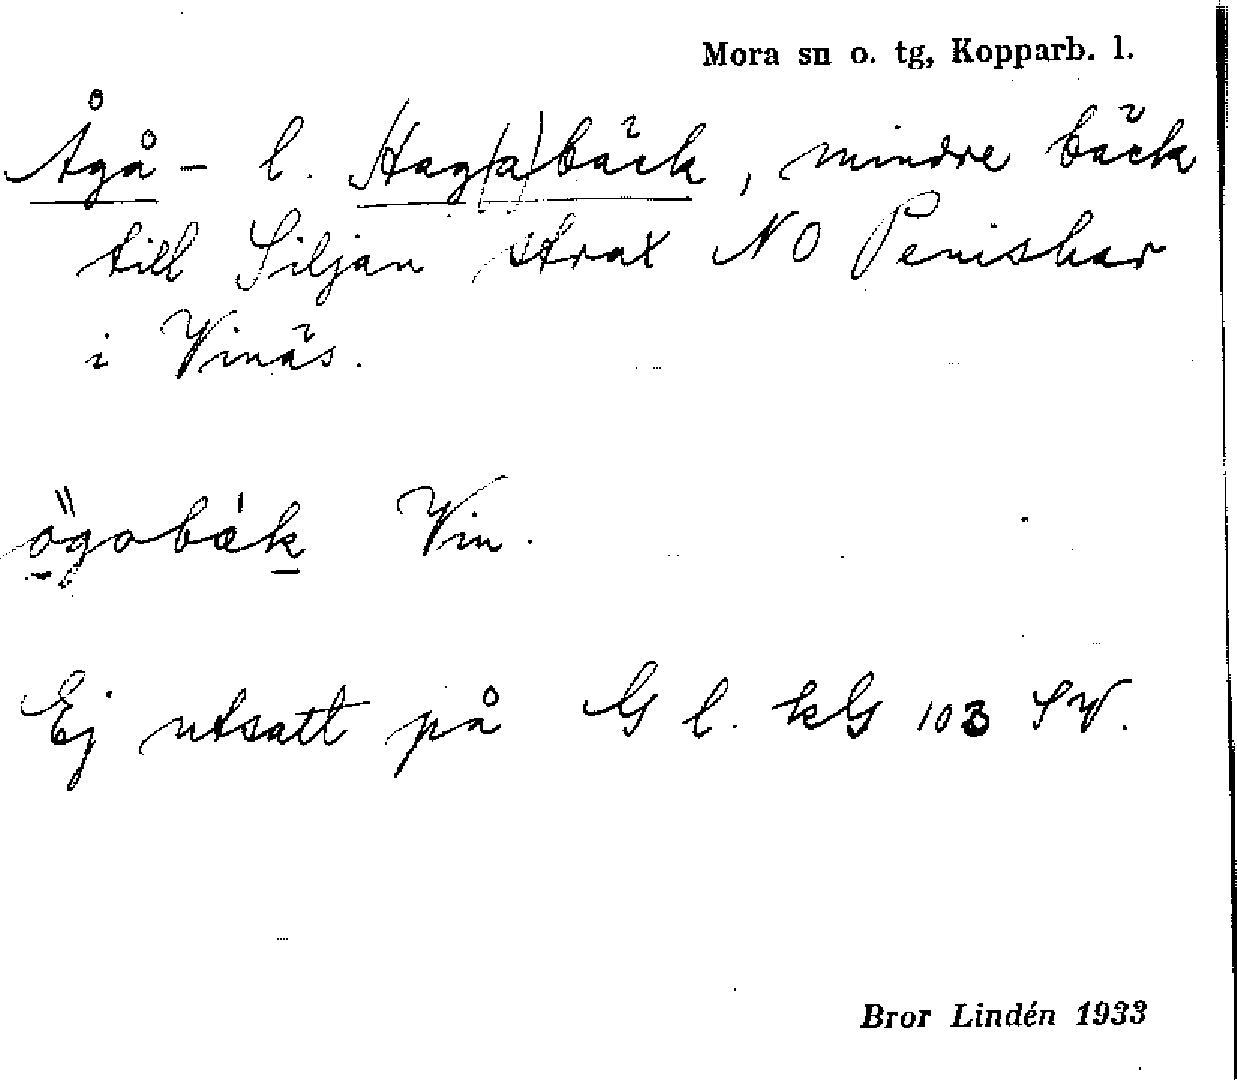 Mora sn o. tg, Kopparb. l.
Ågå- l. Hag(a)bäck, mindre bäck
till Siljan strax NO Penishar
i Vinäs.
ögobäk Vin.
Ej utsatt på G l. kG 103 SV.
Bror Lindén 1933